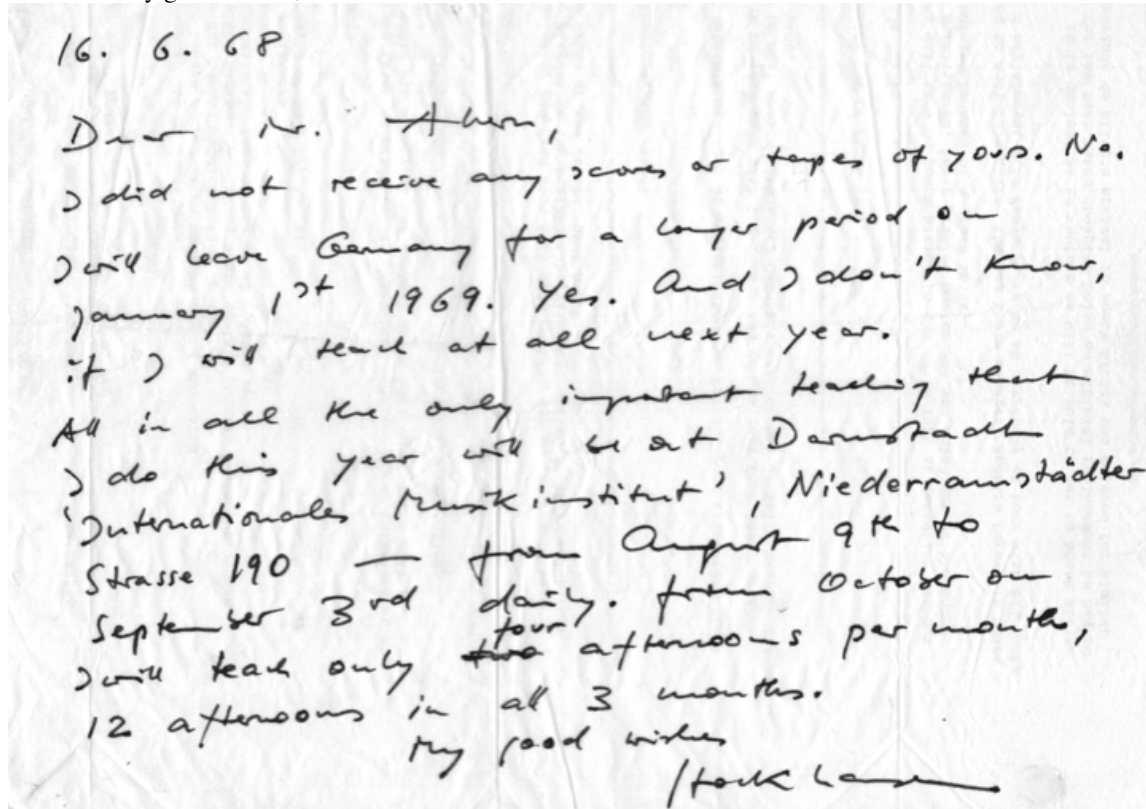 16. 6. 68
Dear Mr. Ahern,
I did not receive any scores or tapes of yours. No.
I will leave Germany for a longer period on
January 1st 1969. Yes. And I don't know,
if I will teach at all next year.
All in all the only important teaching that
I do this year will be at Darmstadt
'Internationales Musikinstitut', Niederramstädter
Strasse 190 — from August 9th to
September 3rd daily. From October on
I will teach only four afternoons per months,
12 afternoons in all 3 months.
My good wishes
Stockhausen